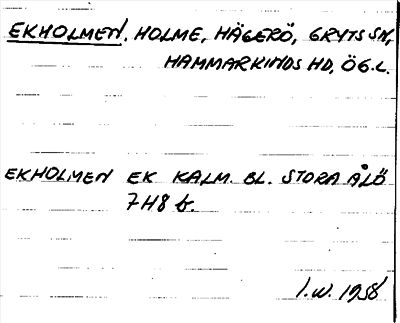 EKHOLMEN. HOLME, HÄGERÖ, GRYTS SN,
HAMMARKINDS HD, ÖG.L.
EKHOLMEN EK KALM. BL. STORA ÅLÖ
7H8 b.
I.W. 1958